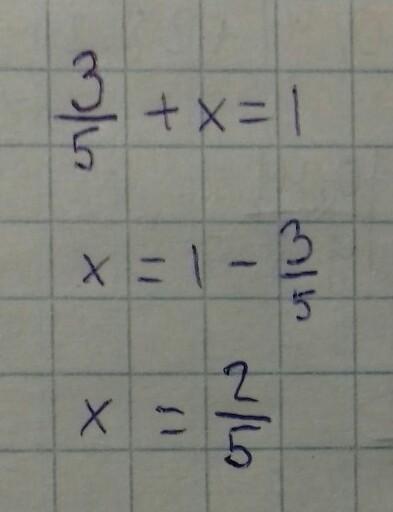 3/5 + x = 1
x = 1 - 3/5
x = 2/5